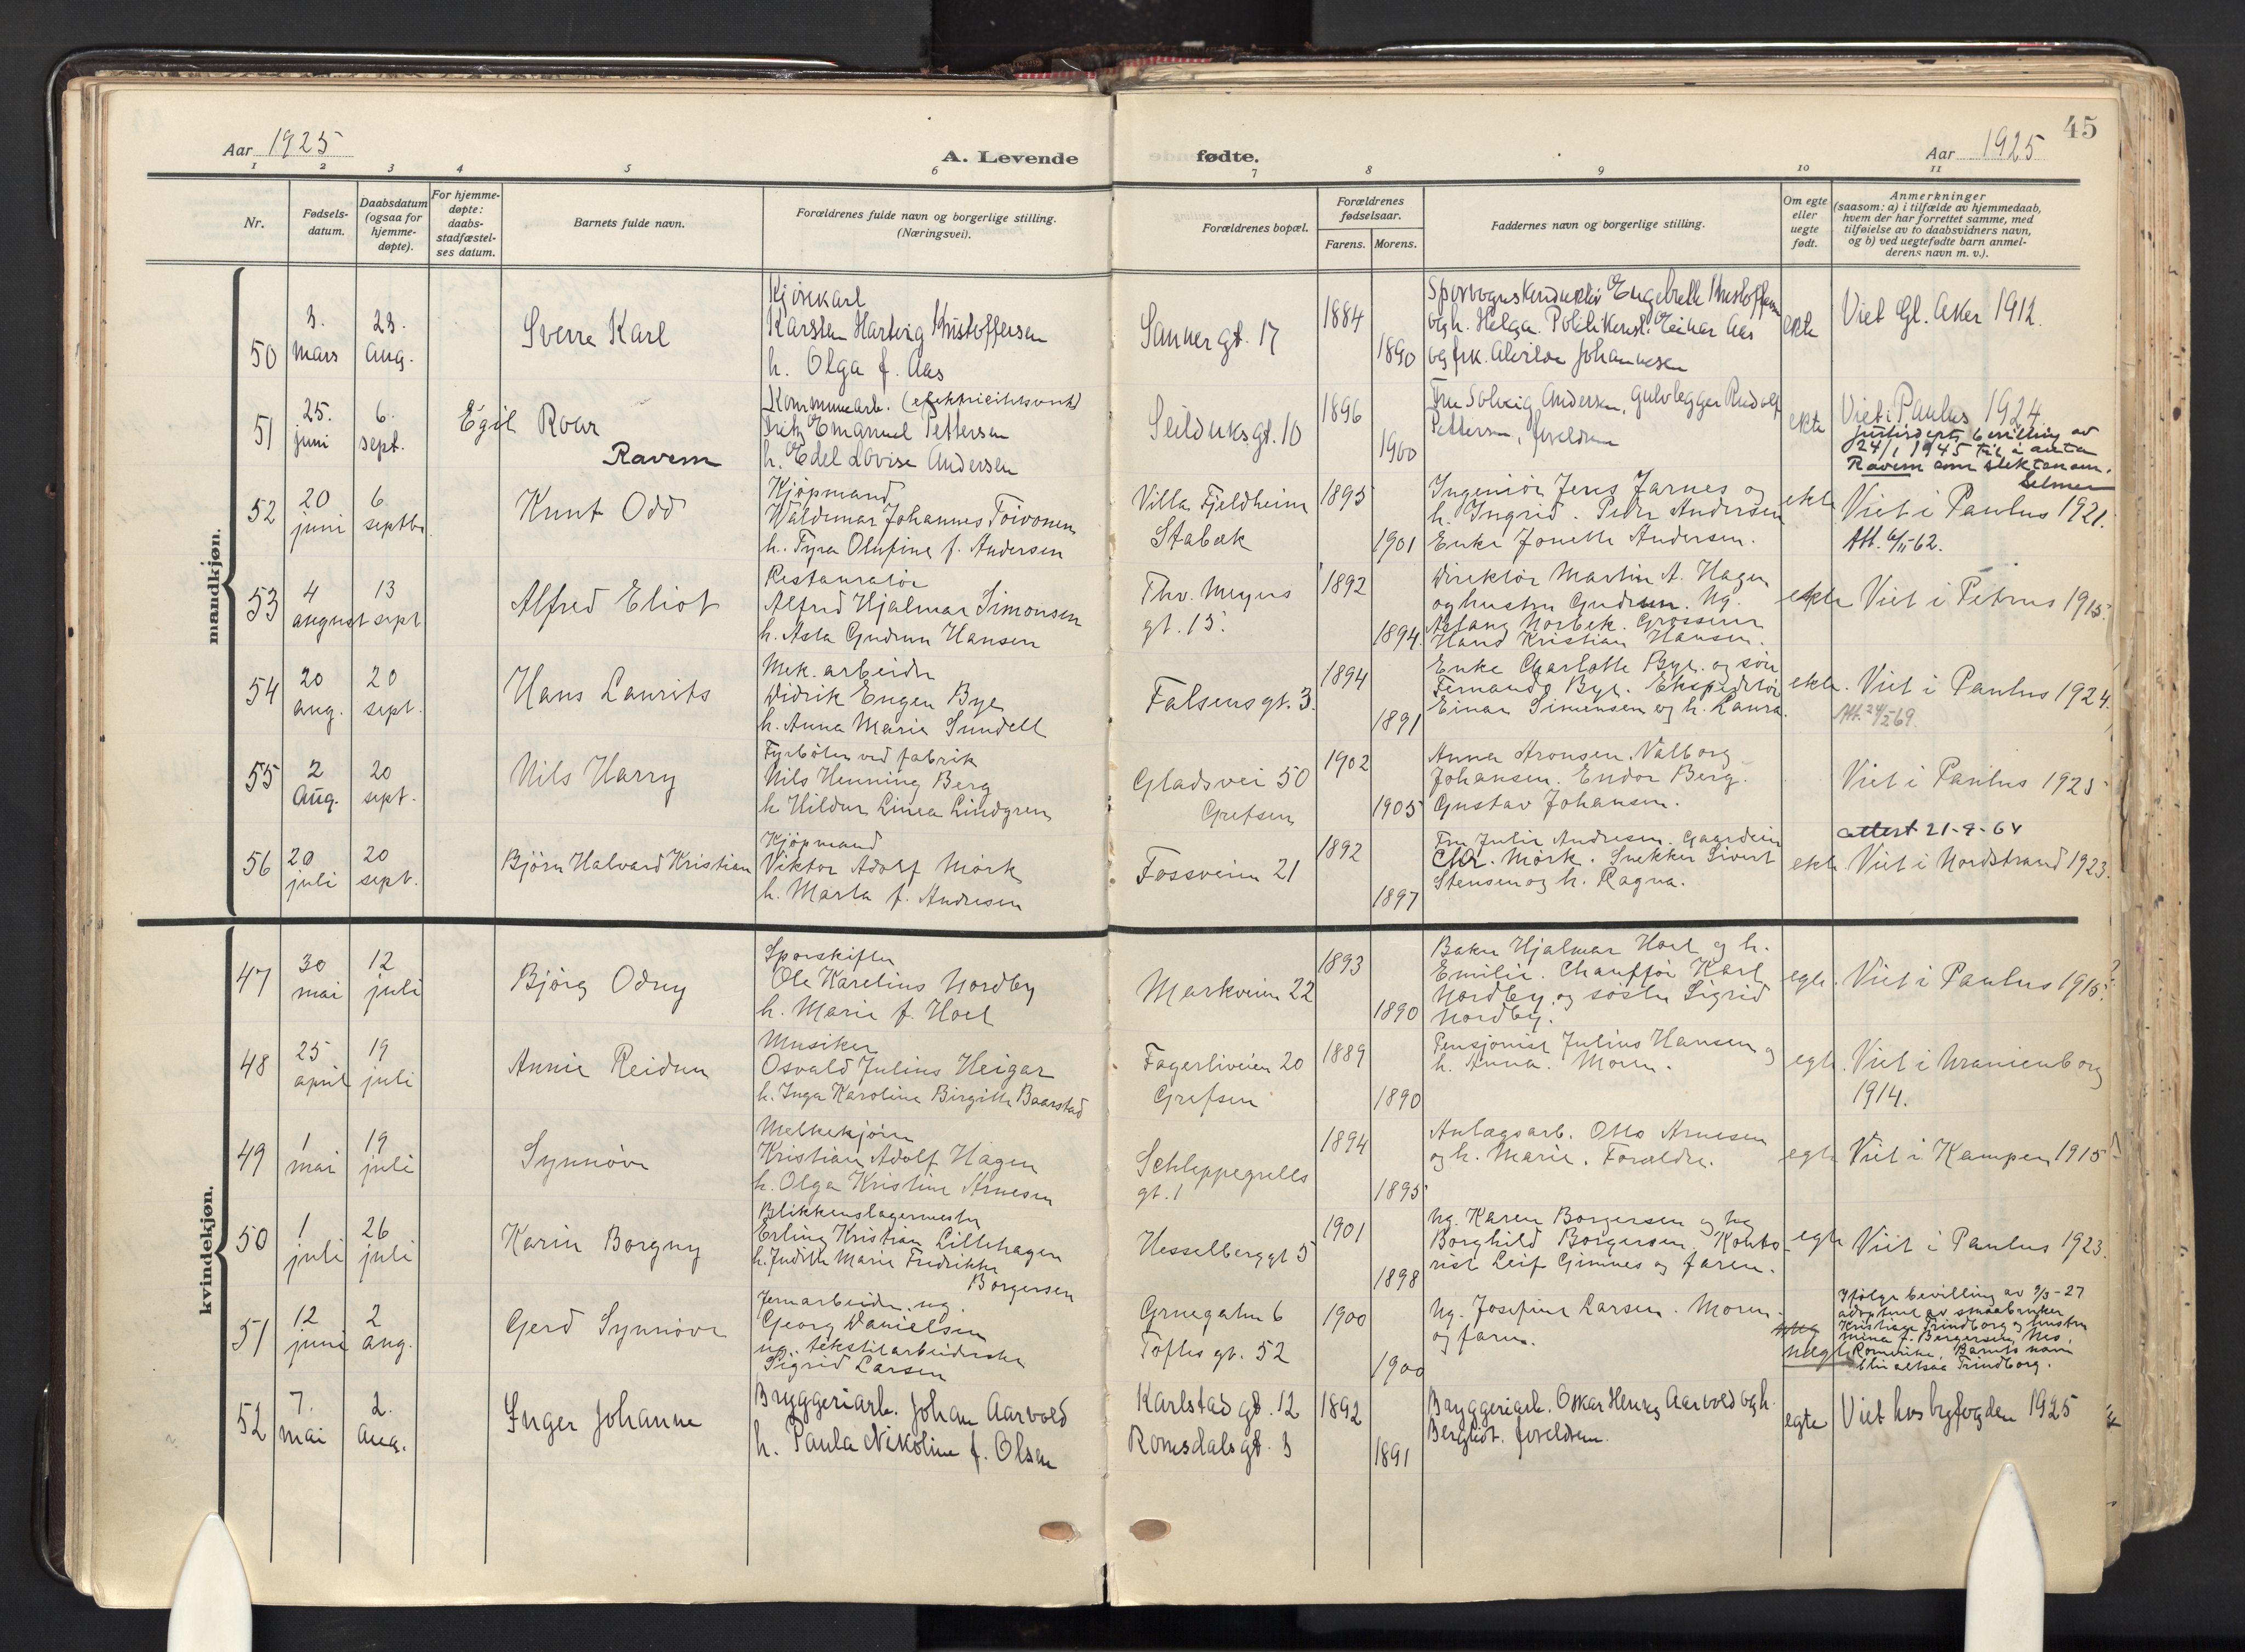 45
Aar 1925
A. Levende
fødte.
Aar 1925
1 2 3 4 5 6 7 8 9 10 11
Nr.
Fødsels-
datum.
Daabsdatum
(ogsaa for
hjemme-
døpte).
For hjemme-
døpte:
daabs-
stadfæstel-
ses datum.
Barnets fulde navn.
Forældrenes fulde navn og borgerlige stilling.
(Næringsvei).
Forældrenes bopæl.
Forældrenes
fødselsaar.
Farens. Morens.
Faddernes navn og borgerlige stilling.
Om egte
eller
uegte
født.
Anmerkninger
(saasom: a) i tilfælde av hjemmedaab,
hvem der har forrettet samme, med
tilføielse av to daabsvidners navn,
og b) ved uegtefødte barn anmel-
derens navn m. v.).
mandkjøn.
50
3.
mars
23.
aug.
Sverre Karl
Kjørekarl
Karsten Hartvig Kristoffersen
h. Olga f. Aas
Sannergt. 17
1884
1890
Sporvognskonduktør Engebrett Kristoffersen
og h. Helga. Politikonst. Einar Aas
og frk. Alvilde Johannesen
ekte
Viet Gl. Aker 1912.
51
25.
juni
6.
sept.
Egil Roar
Ravem
Kommunearb. (elektricitetsverk)
Fritz Emanuel Pettersen
h. Edel Lovise Andersen
Seilduksgt. 10
1896
1900
Fru Solveig Andersen, Gulvlegger Rudolf
Pettersen, foreldrene
ekte
Viet i Paulus 1924
Justisdepts bevilling av
24/1 1945 til å anta
Ravem som slektsnavn.
Selmer
52
20
juni
6
septbr.
Knut Odd
Kjøpmand
Waldemar Johannes Toivonen
h. Tyra Olufine f. Andersen
Villa Fjeldheim
Stabæk
1895
1901
Ingeniør Jens Jarnes og
h. Ingrid. Peder Andersen
Enke Jonette Andersen.
ekte
Viet i Paulus 1921.
Att. 6/11-62.
53
4
august
13
sept
Alfred Eliot
Restauratør
Alfred Hjalmar Simonsen
h. Asta Gudrun Hansen
Thv. Meyers
gt. 15.
1892
1894.
Direktør Martin A. Hagen
og hustru Gudrun. Ug.
Aslaug Norbek. Grosserer
Hans Kristian Hansen.
ekte
Viet i Petrus 1915.
54
20
aug.
20
sept.
Hans Laurits
Mek. arbeider
Didrik Eugen Bye
h. Anna Marie Sundell
Falsensgt. 3.
1894
1891
Enke Charlotte Bye. og søn
Fernando Bye. Ekspeditør
Einar Simensen og h. Laura.
ekte.
Viet i Paulus 1924.
55
2
Aug.
20
sept.
Nils Harry
Fyrbøter ved fabrik
Nils Henning Berg
h Hildur Linea Lindgren
Gladsvei 50
Grefsen
1902
1905
Anna Aronsen. Valborg
Johansen. Endor Berg.
Gustav Johansen.
Viet i Paulus 1925
56
20
juli
20
sept.
Bjørn Halvard Kristian
Kjøpmand
Viktor Adolf Mørk
h. Marta f. Andresen
Fossveien 21
1892
1897
Fru Julie Andresen. Gaardeier
Chr. Mørk. Snekker Sivert
Stensen og h. Ragna.
ekte
attest 21-9-64
Viet i Nordstrand 1923.
kvindekjøn.
47
30
mai
12
juli
Bjørg Odny
Sporskifter
Ole Karelius Nordby
h. Marie f. Hoel
Markveien 22
1893
1890
Baker Hjalmar Hoel og h.
Emilie. Chauffør Karl
Nordby og søster Sigrid
Nordby.
egte.
Viet i Paulus 1915.
48
25
april
19
juli
Annie Reidun
Musiker
Osvald Julius Heigar
h. Inga Karoline Birgitte Baarstad
Fagerliveien 20
Grefsen
1889
1890
Pensjonist Julius Hansen og
h. Anna. Moren.
egte.
Viet i Uranienborg
1914.
49
1
mai
19
juli
Synnøve
Melkekjører
Kristian Adolf Hagen
h. Olga Kristine Arnesen
Schleppegrells
gt. 1
1894
1895
Anlægsarb. Otto Arnesen
og h. Marie. Forældre.
egte
Viet i Kampen 1915
50
1
juli
26
juli
Karin Borgny
Blikkenslagermester
Erling Kristian Lillehagen
h. Judith Marie Fredrikke
Borgersen
Hesselberggt 5
1901
1898
Ug. Karen Borgersen og ug
Borghild Borgersen. Konto-
rist Leif Gimnes og faren.
egte
Viet i Paulus 1923.
51
12
juni
2
aug.
Gerd Synnøve
Jernarbeider. ug.
Georg Danielsen
ug. tekstilarbeiderske
Sigrid Larsen
Gruegaten 6
Toftes gt. 52
1900
1900
Ug. Josefine Larsen. Moren.
og faren.
uegte
Ifølge bevilling av 9/3-27
adoptert av smaabruker
Kristian Trindborg og hustru
Mina f. Bergersen, Nes,
Romerike. Barnets navn
blir altsaa Trindborg.
52
7.
mai
2.
Aug.
Inger Johanne
Bryggeriarb. Johan Aarvold
h. Paula Nikoline f. Olsen
Karlstadgt. 12
Romsdalsgt. 3
1892
1891
Bryggeriarb. Oskar Henry Aarvold og h.
Bergliot. foreldrene.
egte
Viet hos byfogden 1925